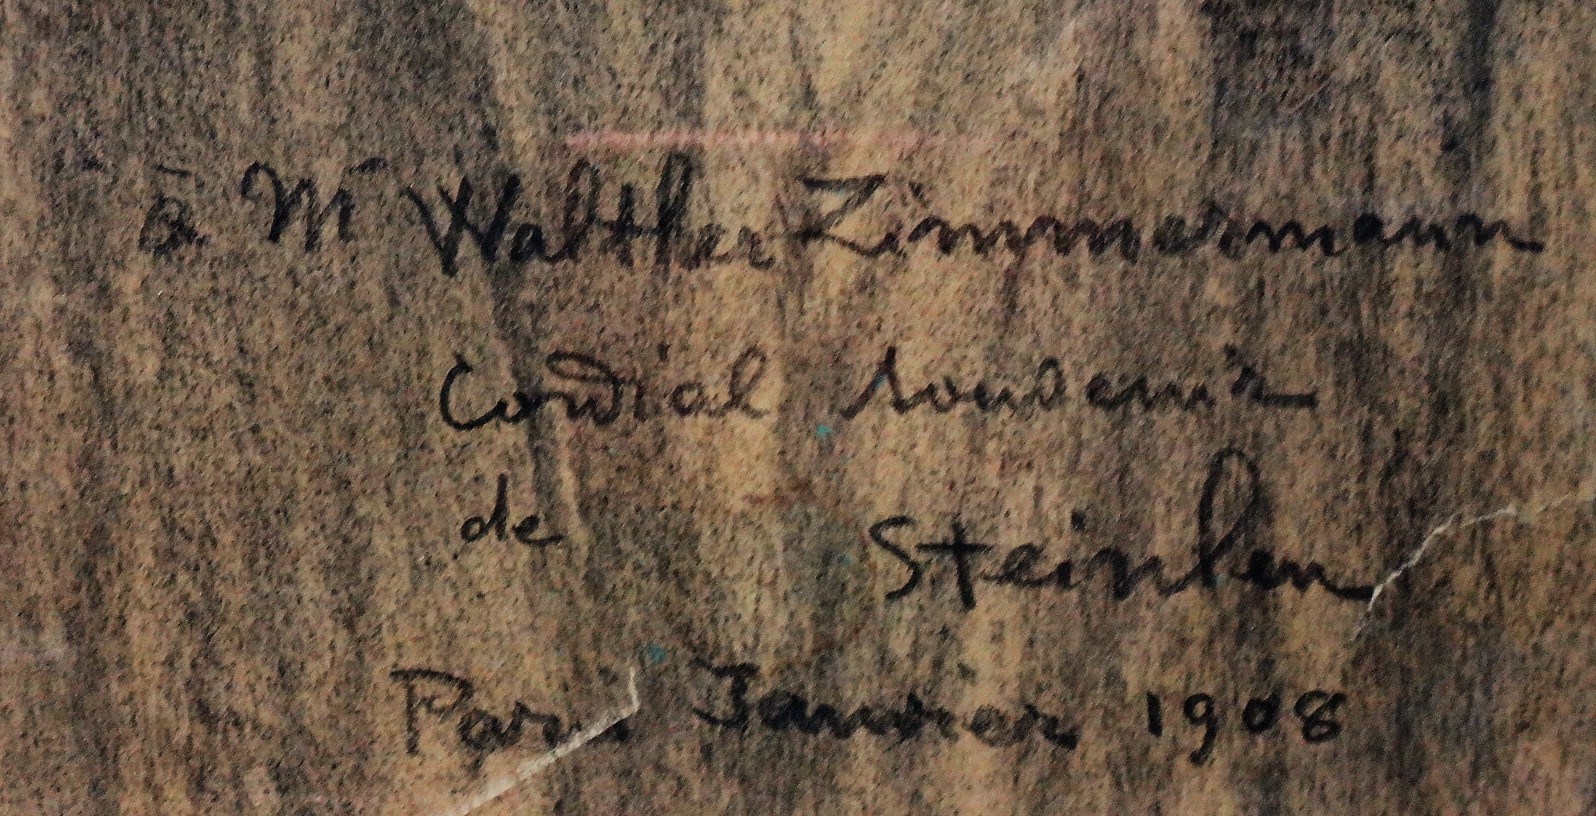 à Mr Walther Zimmermann
Cordial souvenir
de Steinlen
Paris Janvier 1908